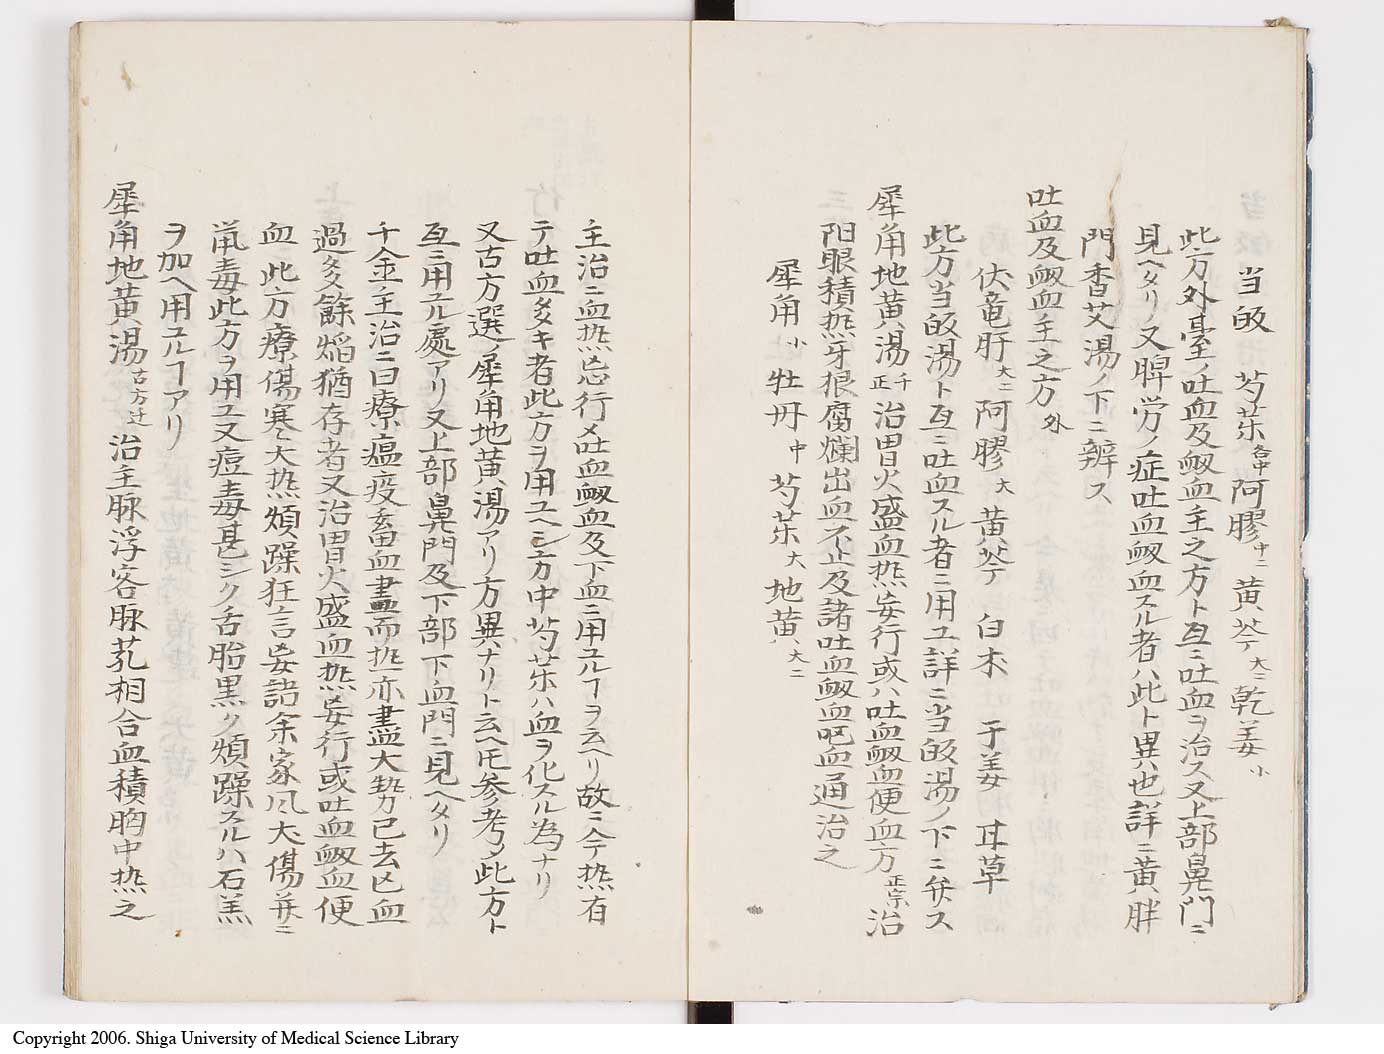 当皈 芍薬各中 阿膠中二 黄芩大二 乾姜小
此方外臺ノ吐血及衂血主之方ト互ニ吐血ヲ治ス又上部鼻門ニ
見ヘタリ又脾労ノ症吐血衂血スル者ハ此ト異也詳ニ黄胖
門香艾湯ノ下ニ辨ス
吐血及衂血主之方 外
伏竜肝大二 阿膠大 黄芩 白朮 干姜 甘草
此方当皈湯ト互ニ吐血スル者ニ用ユ詳ニ当皈湯ノ下ニ弁ス
犀角地黄湯千正 治胃火盛血热妄行或ハ吐血衂血便血方正宗治
阳眼積热牙根腐爛出血不止及諸吐血衂血呕血通治之
犀角小 牡丹中 芍薬大 地黄大二
主治ニ血热忘行〆吐血衂血及下血ニ用ユルヿヲ云ヘリ故ニ今热有
テ吐血多キ者此方ヲ用ユヘシ方中芍薬ハ血ヲ化スル為ナリ
又古方選犀角地黄湯アリ方異ナリト云ヘ𪜈参考〆此方ト
互ニ用ユル處アリ又上部鼻門及下部下血門ニ見ヘタリ
千金主治ニ曰療瘟疫畜血盡而热亦盡大勢已去亡血
過多餘焔猶存者又治胃火盛血热妄行或吐血衂血便
血 此方療傷寒大热煩躁狂言妄語余家风大傷并ニ
鼠毒此方ヲ用ユ又痘毒甚シク舌胎黒ク煩躁スルハ石羔
ヲ加ヘ用ユルヿアリ
犀角地黄湯古方辻 治主脉浮客脉芤相合血積胸中热之